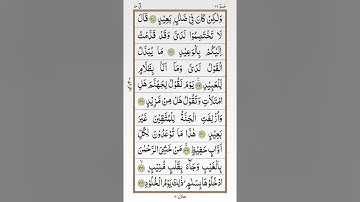 وَلٰكِنْ كَانَ فِيْ ضَلٰلٍۭ بَعِيْدٍ ۝ قَالَ
لَا تَخْتَصِمُوْا لَدَيَّ وَقَدْ قَدَّمْتُ
اِلَيْكُمْ بِالْوَعِيْدِ ۝ مَا يُبَدَّلُ
الْقَوْلُ لَدَيَّ وَمَآ اَنَا بِظَلَّامٍ
لِّلْعَبِيْدِ ۝ يَوْمَ نَقُوْلُ لِجَهَنَّمَ هَلِ
امْتَلَاْتِ وَتَقُوْلُ هَلْ مِنْ مَّزِيْدٍ ۝
وَاُزْلِفَتِ الْجَنَّةُ لِلْمُتَّقِيْنَ غَيْرَ
بَعِيْدٍ ۝ هٰذَا مَا تُوْعَدُوْنَ لِكُلِّ
اَوَّابٍ حَفِيْظٍ ۝ مَنْ خَشِيَ الرَّحْمٰنَ
بِالْغَيْبِ وَجَآءَ بِقَلْبٍ مُّنِيْبٍ ۝
ادْخُلُوْهَا بِسَلٰمٍ ذٰلِكَ يَوْمُ الْخُلُوْدِ ۝